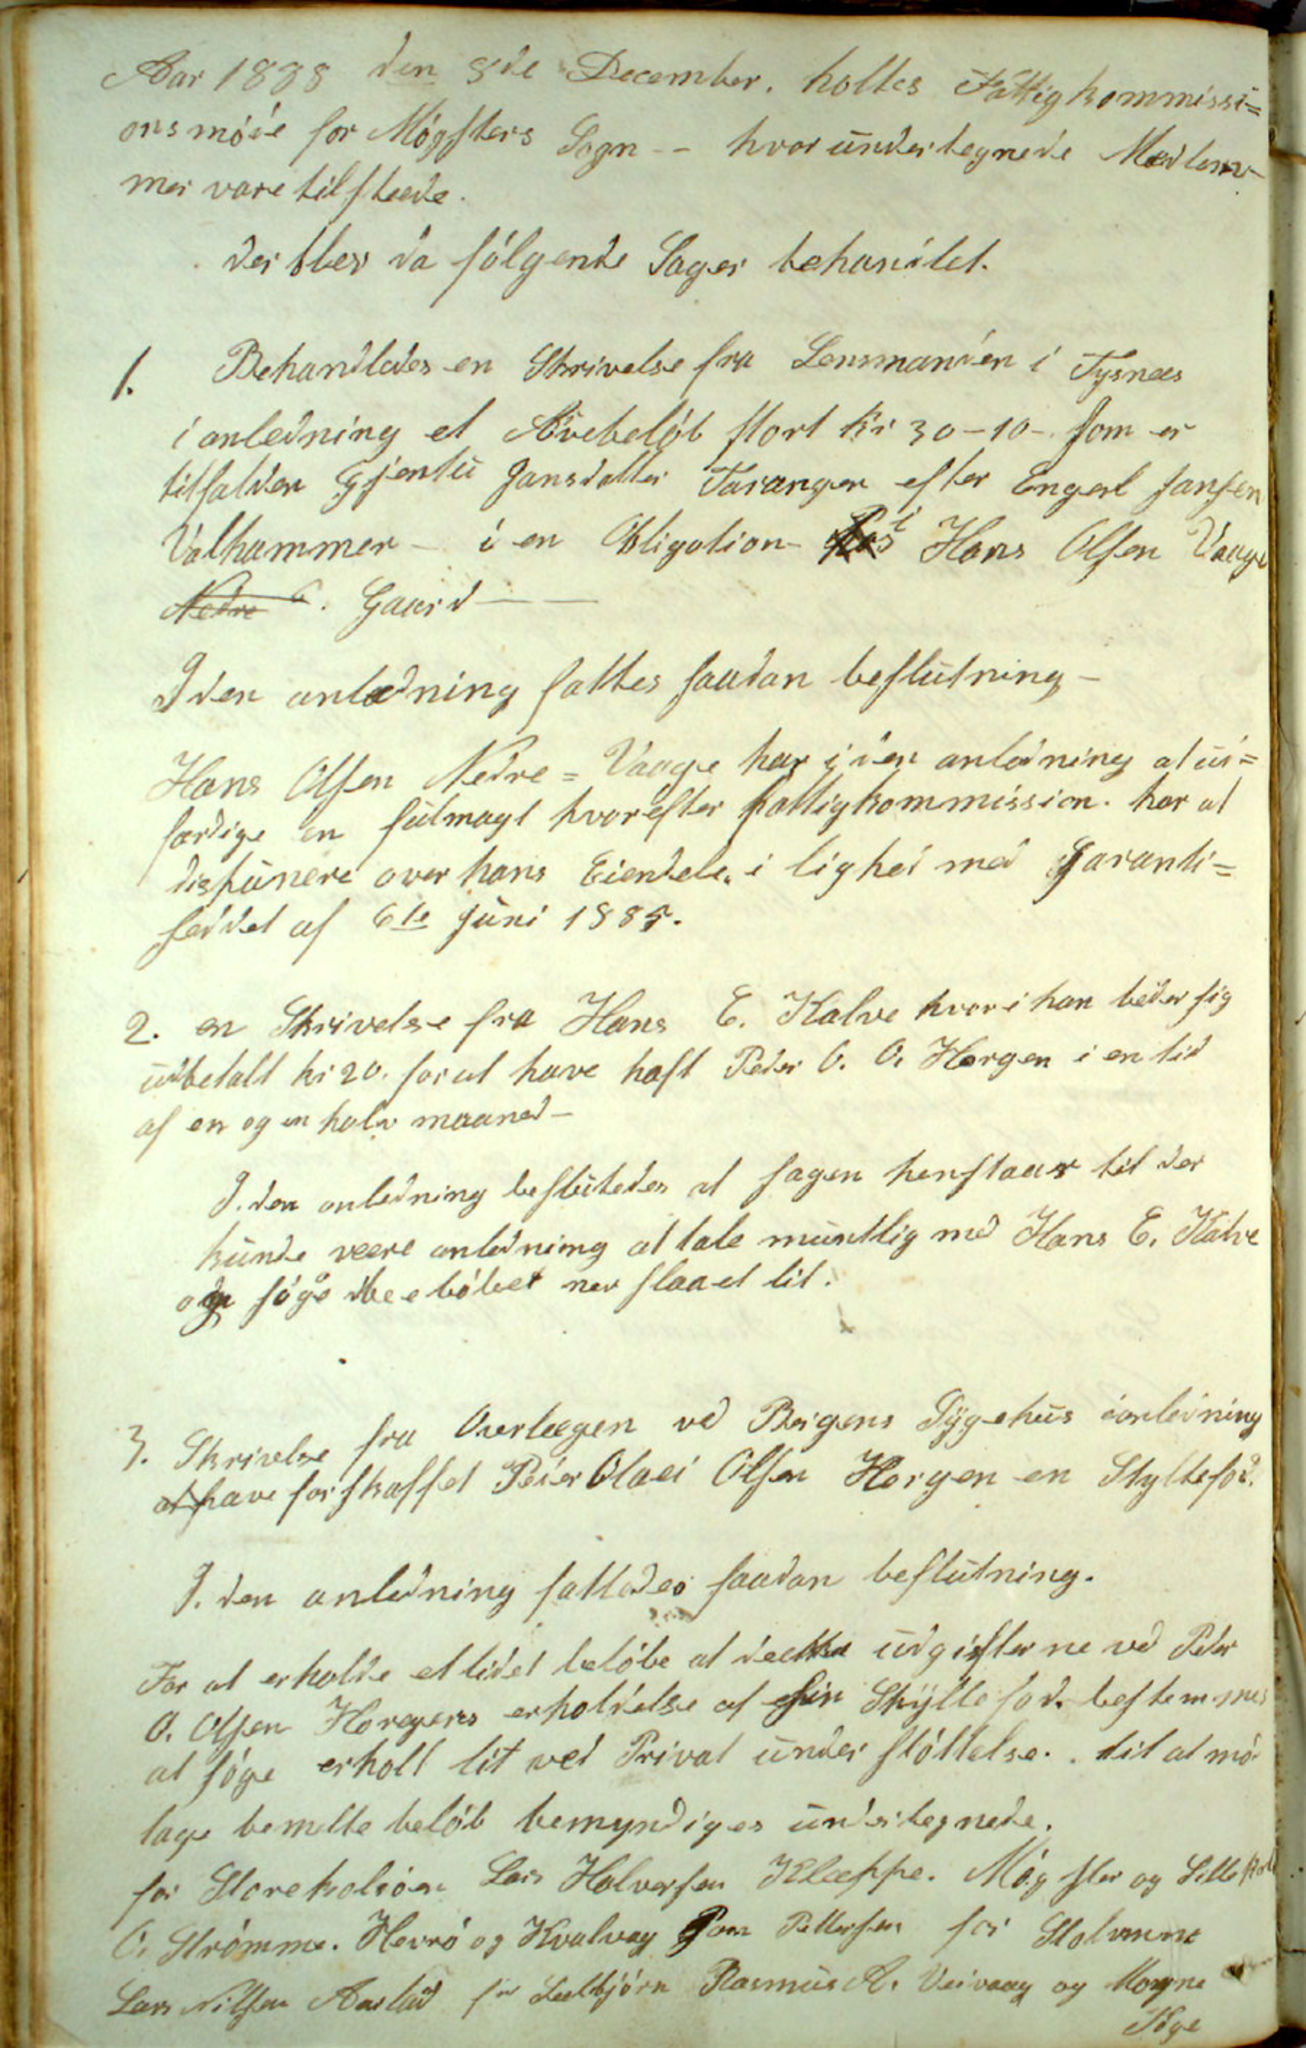 Aar 1888 den 8de December. holtes Fattigkommissi=
onsmøde for Møgsters Sogn -- hvor undertegnede Medlem-
mer vare tilstæde.
der blev da følgende Sager behandlet.
1. Behandledes en Skrivelse fra Lensmanden i Tysnæs
i anledning et Arvebeløb stort kr 30-10- som er
tilfalden Gjentu Jansdatter Taranger efter Engel Jansen
Valhammer - i en Obligation i Hans Olsen Vaage
Nedre Gaard --
I den anledning fattes saadan beslutning -
Hans Olsen Nedre = Vaage har i den anledning at ud=
færdige en fulmagt hvorefter fattigkommission. har at
disponere over hans Eiendele, i lighed med Garanti=
seddel af 6te Juni 1885.
2. en Skrivelse fra Hans E. Kalve hvori han beder sig
udbetalt kr 20. for at have haft Peder O. O. Horgen i en tid
af en og en halv maaned -
I. den anledning besluttedes at sagen henstaar til der
kunde være anledning at tale muntlig med Hans E. Kalve
og søge beløbet slaaet lit.
3. Skrivelse fra Overlægen ved Bergens Sygehus i anledning
at have forskaffet Peder Olai Olsen Horgen en Styltefod.
I. den anledning fattedes saadan beslutning.
For at erholde et lidet beløbe at dække udgifterne ved Peder
O. Olsen Horgens erholdelse af sin Styltefod. bestemmes
at søge erholt lit ved Privat understøttelse. til at mod
tage bemelte beløb bemyndiges undertegnede.
for Storekalsøen Lars Halversen Kleppe. Møgster og Lille
O. Strømme. Horrø og Kvalvaag Petersen for Stolmene
Lars Nilsen Aarland for Selbjørn Rasmus A. Veivaag og Mogne
Søge